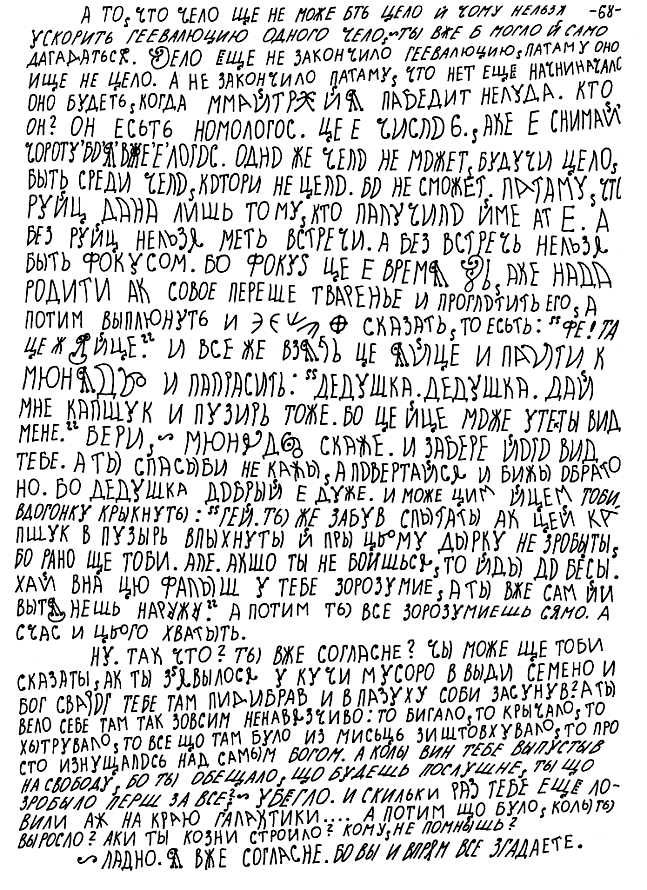 А ТО, ЧТО ЧЕЛО ЩЕ НЕ МОЖЕ БТЬ ЦЕЛО Й ЧОМУ НЕЛЬЗЯ -68-
УСКОРИТЬ ГЕЕВАЛЮЦИЮ ОДНОГО ЧЕЛО,~ТЫ ВЖЕ Б МОГЛО Й САМО
ДАГАДАТЬСЯ. ЧЕЛО ЕЩЕ НЕ ЗАКОНЧИЛО ГЕЕВАЛЮЦИЮ, ПАТАМУ ОНО
ИЩЕ НЕ ЦЕЛО. А НЕ ЗАКОНЧИЛО ПАТАМУ, ЧТО НЕТ ЕЩЕ НАЧНИНАЧАЛС
ОНО БУДЕТЬ, КОГДА ПАБЕДИТ НЕЛУДА. КТО
ОН? ОН ЕСЬТЬ НОМОЛОГОС. ЦЕ Е ЧИСЛО 6., АКЕ Е СНИМАЙ
ЛОГОС. ОДНО ЖЕ ЧЕЛО НЕ МОЖЕТ, БУДУЧИ ЦЕЛО,
БЫТЬ СРЕДИ ЧЕЛО, КОТОРИ НЕ ЦЕЛО. БО НЕ СМОЖЕТ. ПАТАМУ, ЧТО
РУЙЦ ДАНА ЛИШЬ ТОМУ, КТО ПАЛУЧИЛО ИМЕ АТ Е. А
БЕЗ РУЙЦ НЕЛЬЗЯ МЕТЬ ВСТРЕЧИ. А БЕЗ ВСТРЕЧЬ НЕЛЬЗЯ
БЫТЬ ФОКУСОМ. БО ФОКУЅ ЦЕ Е ВРЕМЯ АКЕ НАДА
РОДИТИ АК СОВОЕ ПЕРЕШЕ ТВАРЕНЬЕ И ПРОГЛОТИТЬ ЕГО, А
ПОТИМ ВЫПЛЮНУТЬ И СКАЗАТЬ, ТО ЕСЬТЬ: "ФЕ! ТА
ЦЕ Ж ЯЙЦЕ." И ВСЕ ЖЕ ВЗЯТЬ ЦЕ ЯЙЦЕ И ПАЙТИ К
И ПАПРАСИТЬ: "ДЕДУШКА. ДЕДУШКА. ДАЙ
МНЕ КАПЩУК И ПУЗИРЬ ТОЖЕ. БО ЦЕ ЙЦЕ МОЖЕ УТЕТЫ ВИД
МЕНЕ." БЕРИ, ~ СКАЖЕ. И ЗАБЕРЕ ЙОГО ВИД
ТЕБЕ. А ТЫ СПАСЫБИ НЕ КАЖЫ, А ПОВЕРТАЙСЯ И БИЖЫ ОБРАТО
НО. БО ДЕДУШКА ДОБРЫЙ Е ДУЖЕ. И МОЖЕ ЦИМ ЙЦЕМ ТОБИ
ВДОГОНКУ КРЫКНУТЫ: "ГЕЙ. ТЫ ЖЕ ЗАБУВ СПЫТАТЫ АК ЦЕЙ КА
ПЩУК В ПУЗЫРЬ ВПЫХНУТЫ Й ПРЫ ЦЬОМУ ДЫРКУ НЕ ЗРОБЫТЫ,
БО РАНО ЩЕ ТОБИ. АЛЕ. АКЩО ТЫ НЕ БОИШЬСЯ, ТО ЙДЫ ДО БЕСЫ.
ХАЙ ВНА ЦЮ ФАЛЫШ У ТЕБЕ ЗОРОЗУМИЕ, А ТЫ ВЖЕ САМ ЙИ
ВЫТЯНЕШЬ НАРУЖУ." А ПОТИМ ТЫ ВСЕ ЗОРОЗУМИЕШЬ СЯМО. А
СЧАС И ЦЬОГО ХВАТЫТЬ.
НУ. ТАК ЧТО? ТЫ ВЖЕ СОГЛАСНЕ? ЧЫ МОЖЕ ЩЕ ТОБИ
СКАЗАТЫ, АК ТЫ ЗЯВЫЛОСЯ У КУЧИ МУСОРО В ВЫДИ СЕМЕНО И
БОГ ТЕБЕ ТАМ ПИДИБРАВ И В ПАЗУХУ СОБИ ЗАСУНУВ? А ТЫ
ВЕЛО СЕБЕ ТАМ ТАК ЗОВСИМ НЕНАВЯЗЧИВО: ТО БИГАЛО, ТО КРЫЧАЛО, ТО
ХЫТРУВАЛО, ТО ВСЕ ЩО ТАМ БУЛО ИЗ МИСЬЦЬ ЗИШТОВХУВАЛО, ТО ПРО
СТО ИЗНУЩАЛОСЬ НАД САМЫМ БОГОМ. А КОЛЫ ВИН ТЕБЕ ВЫПУСТЫВ
НА СВОБОДУ, БО ТЫ ОБЕЩАЛО, ЩО БУДЕШЬ ПОСЛУШНЕ, ТЫ ЩО
ЗРОБЫЛО ПЕРШ ЗА ВСЕ?~ УБЕГЛО. И СКИЛЬКИ РАЗ ТЕБЕ ЕЩЕ ЛО-
ВИЛИ АЖ НА КРАЮ ГАЛАКТИКИ.... А ПОТИМ ЩО БУЛО, КОЛЫ ТЫ
ВЫРОСЛО? АКИ ТЫ КОЗНИ СТРОИЛО? КОМУ, НЕ ПОМНЫШЬ?
~ ЛАДНО. Я ВЖЕ СОГЛАСНЕ. БО ВЫ И ВПРЯМ ВСЕ ЗГАДАЕТЕ.